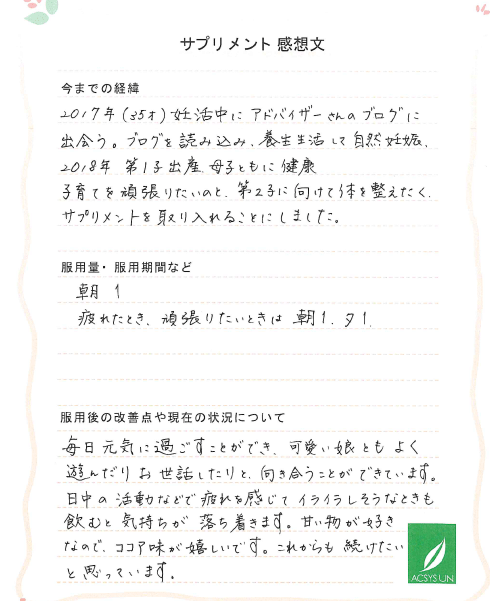 サプリメント 感想文
今までの経緯
2017年(35才)妊活中に アドバイザーさんのブログに
出会う。ブログを読み込み、養生生活して自然妊娠、
2018年 第1子出産、母子ともに健康
子育てを頑張りたいのと、第2子に向けて体を整えたく、
サプリメントを取り入れることにしました。
服用量・服用期間など
朝 1
疲れたとき、頑張りたいときは 朝1、夕1、
服用後の改善点や現在の状況について
毎日元気に過ごすことができ、可愛い娘とも よく
遊んだり お世話したりと、向き合うことができています。
日中の活動などで疲れを感じて イライラしそうなときも
飲むと気持ちが 落ち着きます。甘い物が好き
なので、ココア味が嬉しいです。これからも 続けたい
と思っています。
ACSYS UN